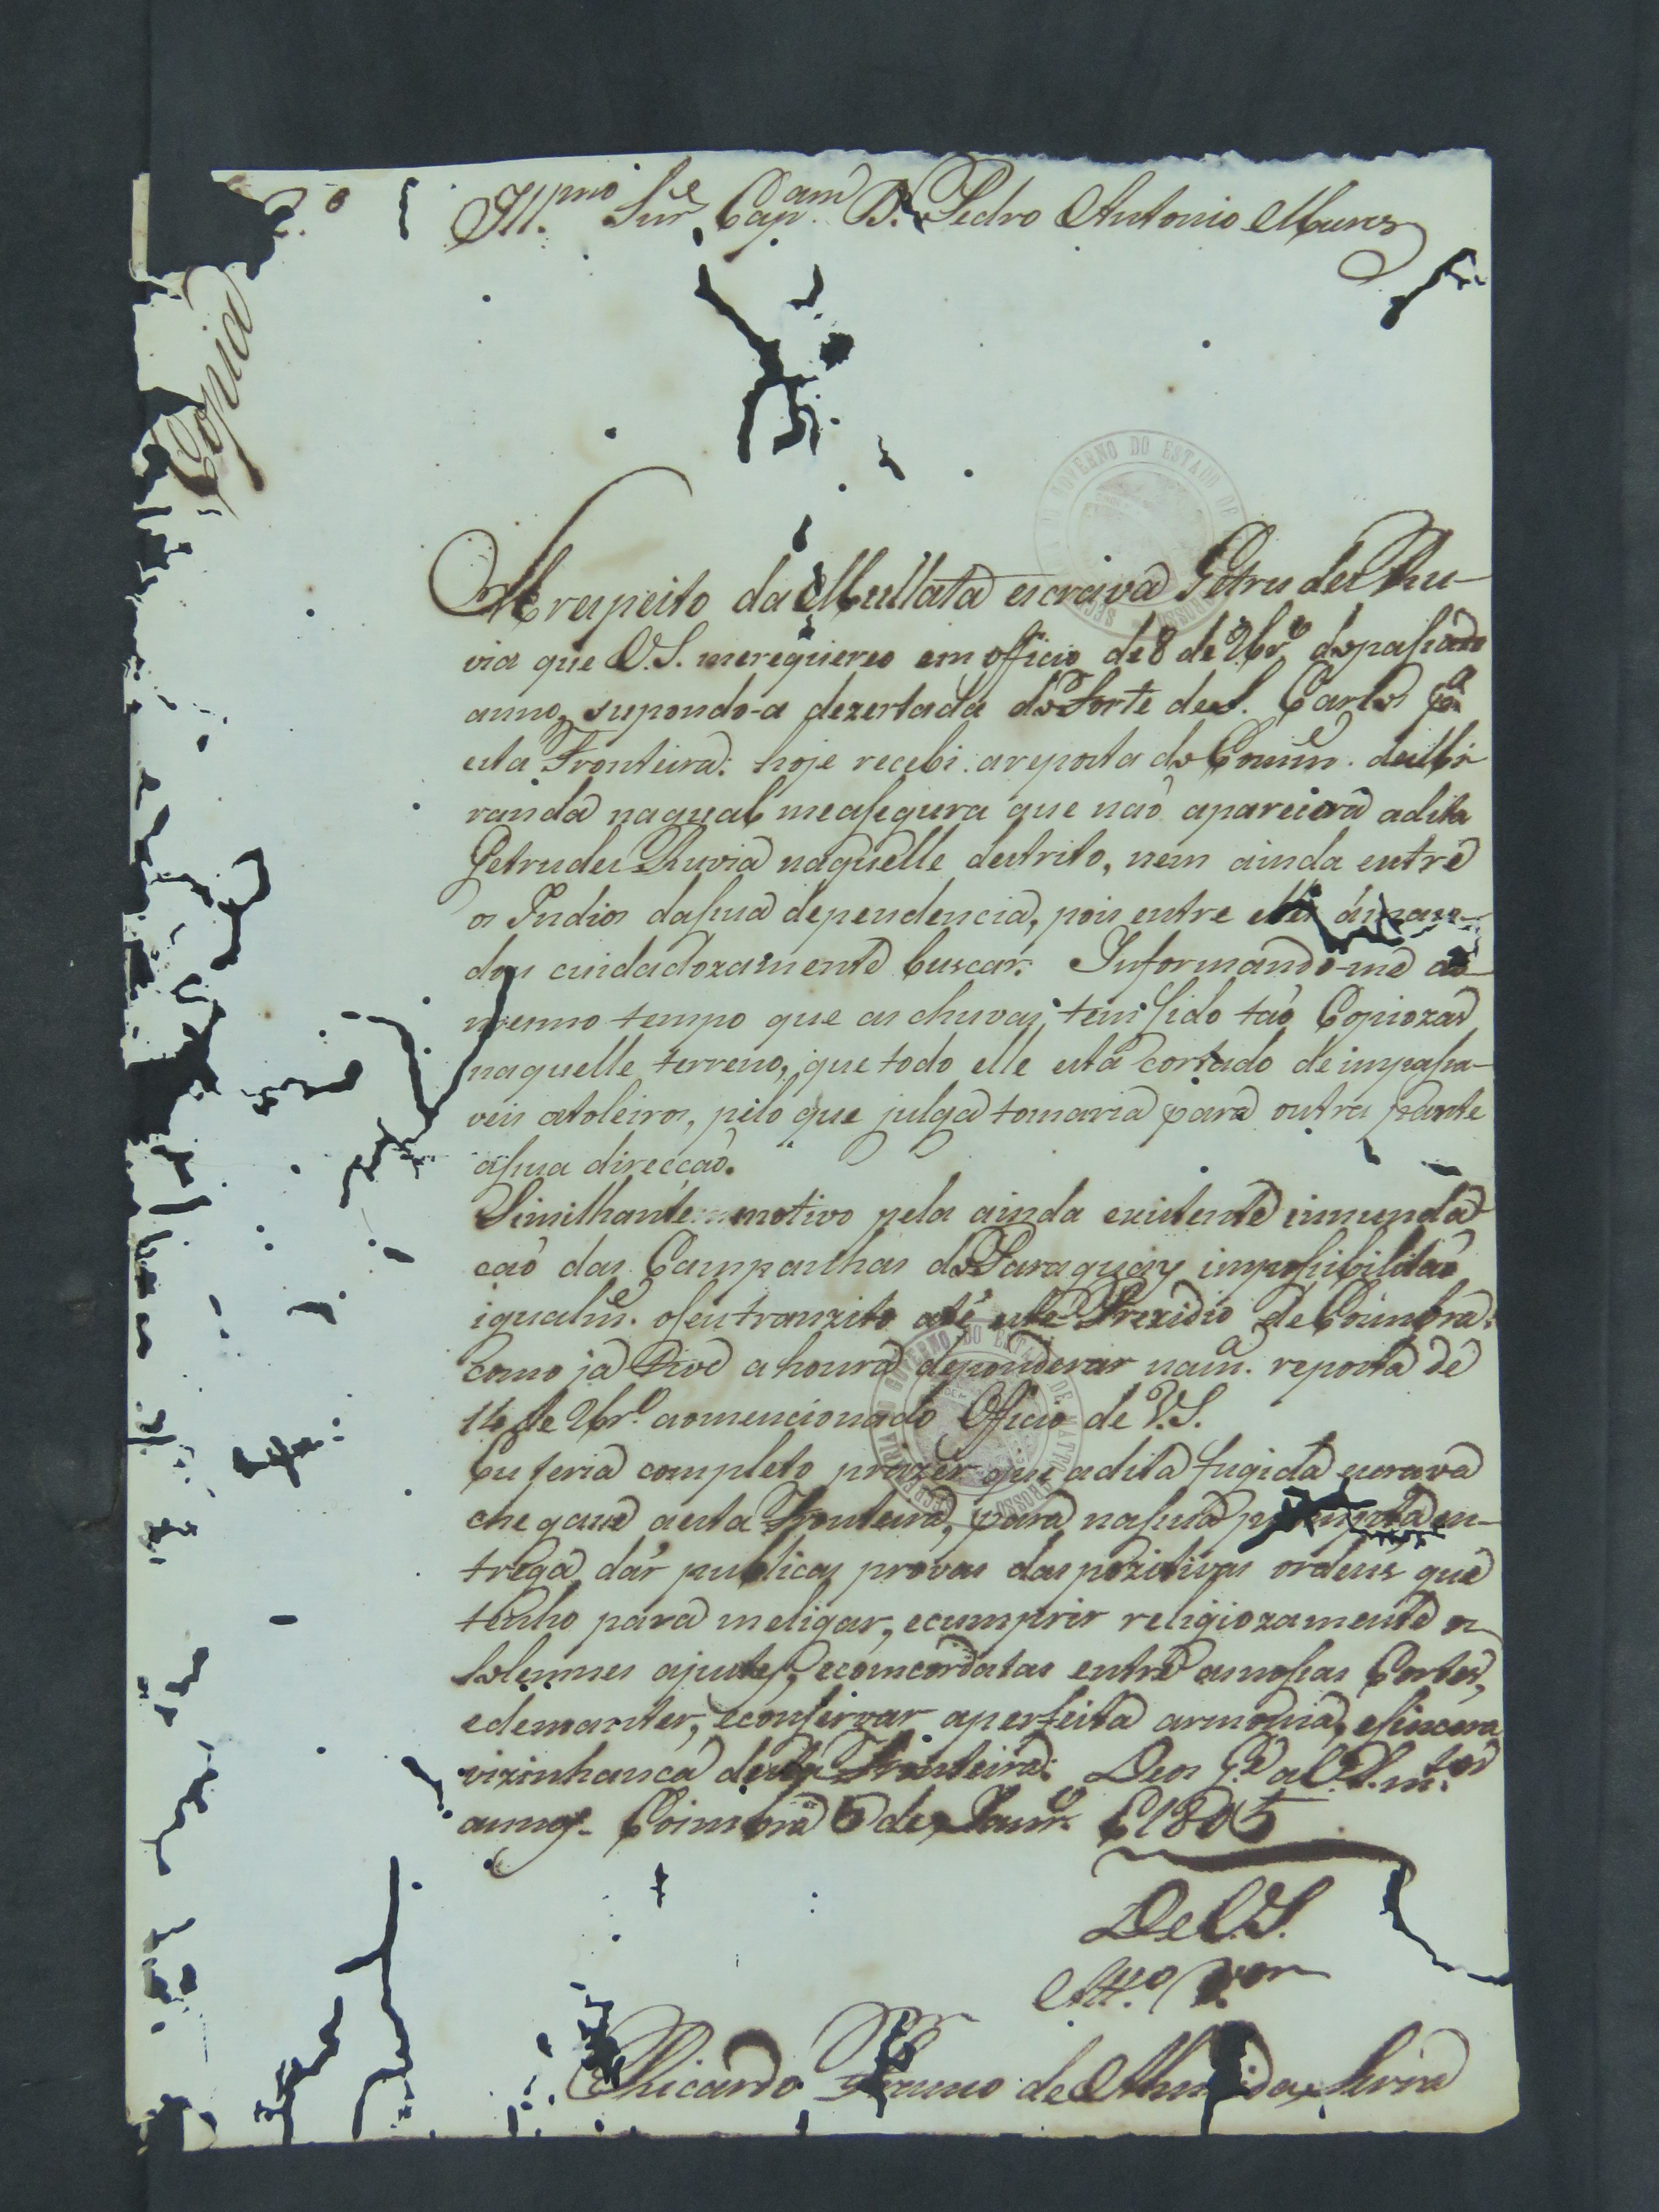 Copia
Ill.mo Snr.e Cap.am D. Pedro Antonio Mures
A respeito da Mullata escrava Getrudes Ru-
via que V.S. merequereo em officio de 8 de 9br.o dopaſsado
anno, supondo-a dezertada do Forte de S. Carlos p.a
esta Fronteira: hoje recebi a reposta do Comm.e de Mi
randa naqual measſegura que naõ aparecera adita
Getrudes Ruvia naquelle destrito, nem ainda entre
os Indios dasua dependencia, pois entre elles á man-
dou cuidadozamente buscar. Informando-me ao
mesmo tempo que as chuvas tem sido taõ Copiozas
naquelle terreno, que todo elle está cortado de impaſsa-
veis atoleiros, pelo que julga tomaria para outra parte
aſua direcçaõ.
Similhante motivo pela ainda existente innunda
caõ das Campanhas do Paraguay impoſsibilitaõ
igualm.e oſeu tranzito até este Prezidio de Coimbra:
como ja tive a honra deponderar nam.a reposta de
14 de 9br.o aomencionado Officio de V.S.
Eu ſeria completo prazer que adita fugida escrava
chegaſse aesta Fronteira, para naſua prompta en-
trega dár publicas provas das pozitivas ordens que
tenho para meligar, ecumprir religiozamente os
solemnes ajustes, econcordatas entre asnoſsas Cortes,
edemanter, econſervar aperfeita armonia, eſincera
vizinhanca desta Fronteira. Deos G.e a V.S. m.tos
annos. Coimbra 5 de Janr.o de 1805
De V.S.
Att.o V.or
Ricardo Franco de Almeida Serra
SECRETARIA DO GOVERNO DO ESTADO DE MATTO GROSSO
SECRETARIA DO GOVERNO DO ESTADO DE MATTO GROSSO